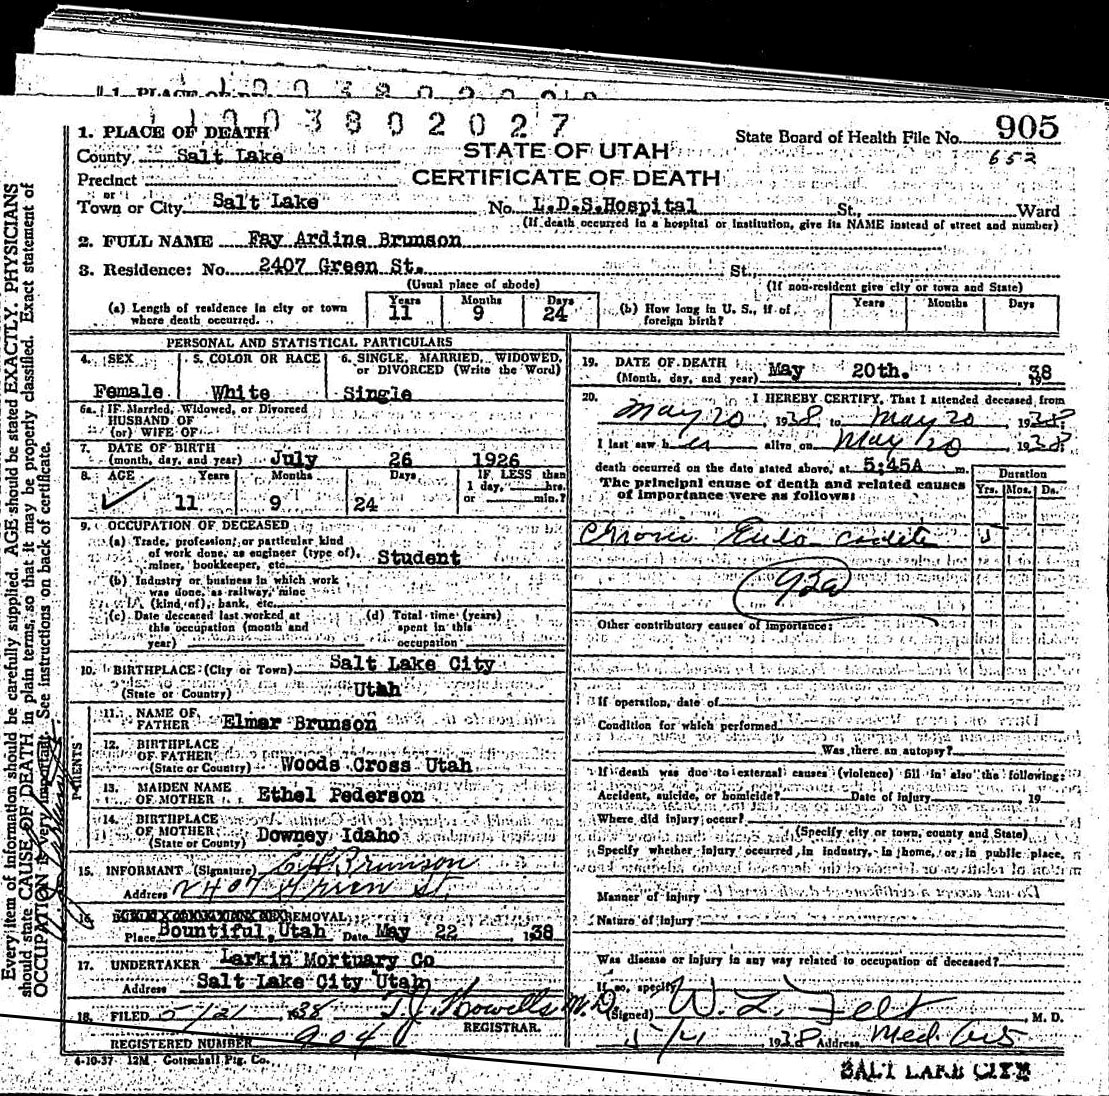 1. PLACE OF DEATH
1 1 0 0 3 8 0 2 0 2 7
State Board of Health File No. 905
652
County Salt Lake
STATE OF UTAH
Precinct
CERTIFICATE OF DEATH
or
Town or City Salt Lake No. L.D.S.Hospital St., Ward
(If death occurred in a hospital or institution, give its NAME instead of street and number)
2. FULL NAME Fay Ardine Brunson
3. Residence: No. 2407 Green St. St.
(Usual place of abode) (If non-resident give city or town and State)
(a) Length of residence in city or town where death occurred. Years 11 Months 9 Days 24
(b) How long in U. S., if of foreign birth? Years Months Days
PERSONAL AND STATISTICAL PARTICULARS
4. SEX Female
5. COLOR OR RACE White
6. SINGLE, MARRIED, WIDOWED, or DIVORCED (Write the Word) Single
6a. IF Married, Widowed, or Divorced
HUSBAND OF
(or) WIFE OF
7. DATE OF BIRTH
(month, day, and year) July 26 1926
8. AGE Years 11 Months 9 Days 24
IF LESS than
1 day, hrs.
or min.?
9. OCCUPATION OF DECEASED
(a) Trade, profession, or particular kind
of work done, as engineer (type of),
miner, bookkeeper, etc. Student
(b) Industry or business in which work
was done, as railway, mine
(kind of), bank, etc.
(c) Date deceased last worked at
this occupation (month and
year)
(d) Total time (years)
spent in this
occupation
10. BIRTHPLACE (City or Town) Salt Lake City
(State or Country) Utah
PARENTS
11. NAME OF
FATHER Elmar Brunson
12. BIRTHPLACE
OF FATHER
(State or Country) Woods Cross Utah
13. MAIDEN NAME
OF MOTHER Ethel Pederson
14. BIRTHPLACE
OF MOTHER
(State or Country) Downey Idaho
15. INFORMANT (Signature) Brunson
Address 2407 Green St.
16. REMOVAL
Place Bountiful, Utah Date May 22, 1938
17. UNDERTAKER Larkin Mortuary Co
Address Salt Lake City Utah
18. FILED 5/21 1938 T.J. Howells M.D.
REGISTRAR.
REGISTERED NUMBER 904
4-10-37 12M Gottschall Ptg. Co.
19. DATE OF DEATH
(Month, day, and year) May 20th. 1938
20. I HEREBY CERTIFY, That I attended deceased from
May 20, 1938, to May 20, 1938;
I last saw her alive on May 20 1938
death occurred on the date stated above, at 5:45A m.
The principal cause of death and related causes
of importance were as follows:
Duration
Yrs. Mos. Ds.
Chronic Endo cardits 5
92a
Other contributory causes of importance:
If operation, date of
Condition for which performed
Was there an autopsy?
If death was due to external causes (violence) fill in also the following:
Accident, suicide, or homicide? Date of injury , 19
Where did injury occur?
(Specify city or town, county and State)
Specify whether injury occurred in industry, in home, or in public place,
Manner of injury
Nature of injury
Was disease or injury in any way related to occupation of deceased?
If so, specify
(Signed) W. L. Felt, M. D.
1938 Address Med. Arts
SALT LAKE CITY
Every item of information should be carefully supplied. AGE should be stated EXACTLY. PHYSICIANS
should state CAUSE OF DEATH in plain terms, so that it may be properly classified. Exact statement of
OCCUPATION is very important. See instructions on back of certificate.